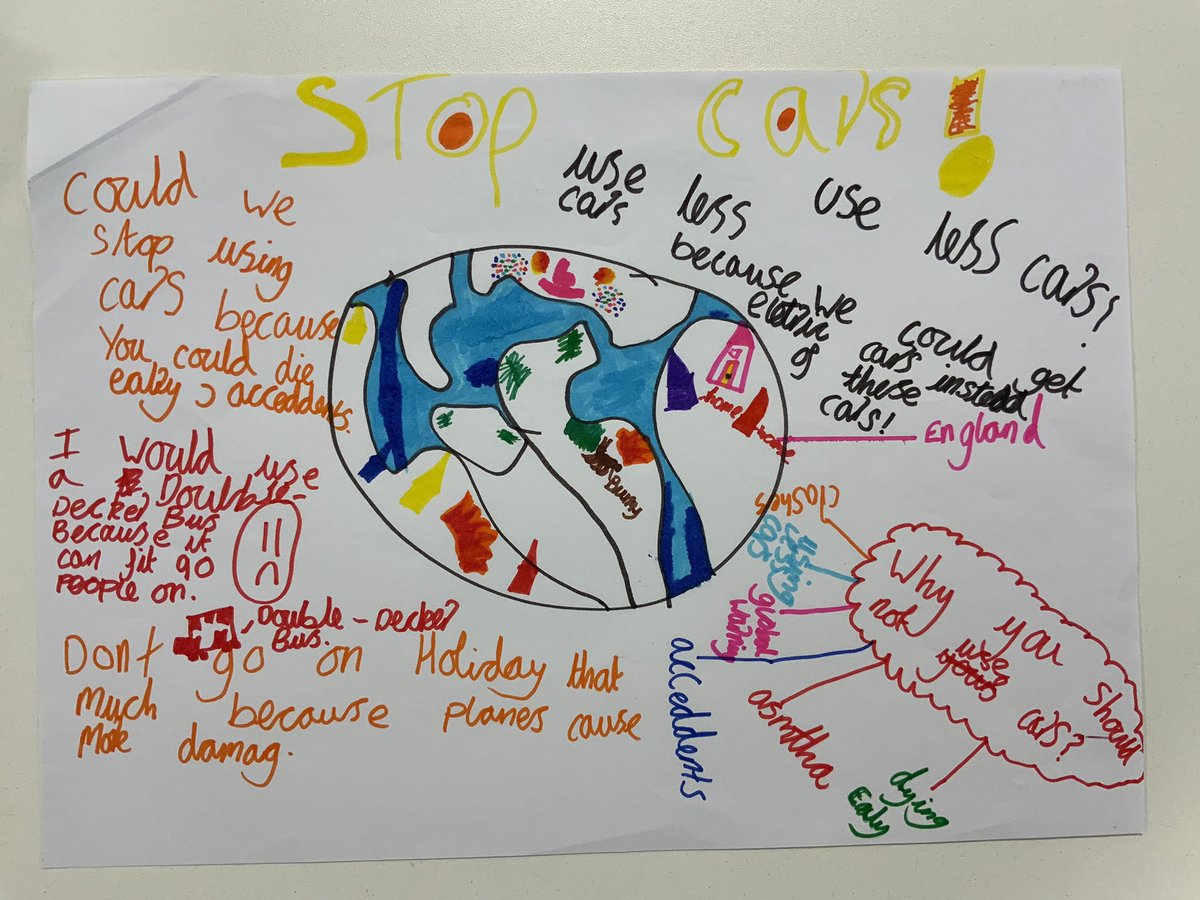 STOP cars!
Could we
Stop using
cars because
You could die
ealzy, acceddents.
use less use less cars!
cars
because we could get
electric cars instead
of these cars!
England
home
I would use
a Doubble-
Decker Bus
Because it
can fit 90
People on.
Double-Decker
Bus.
Dont go on Holiday that
much because planes cause
More damag.
Why you should
not use
cars?
clashes
using
cars
global
warnig
acceddents
asmtha
dying
Ealy